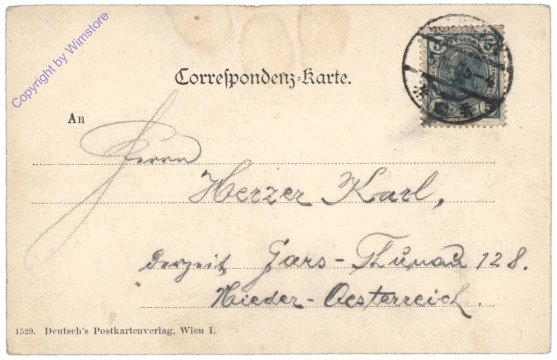 Copyright by Wimstore
Correſpondenz-Karte.
An
Herrn
Herzer Karl,
derzeit Gars-Thunau 128.
Nieder-Oesterreich.
1529. Deutsch's Postkartenverlag, Wien I.